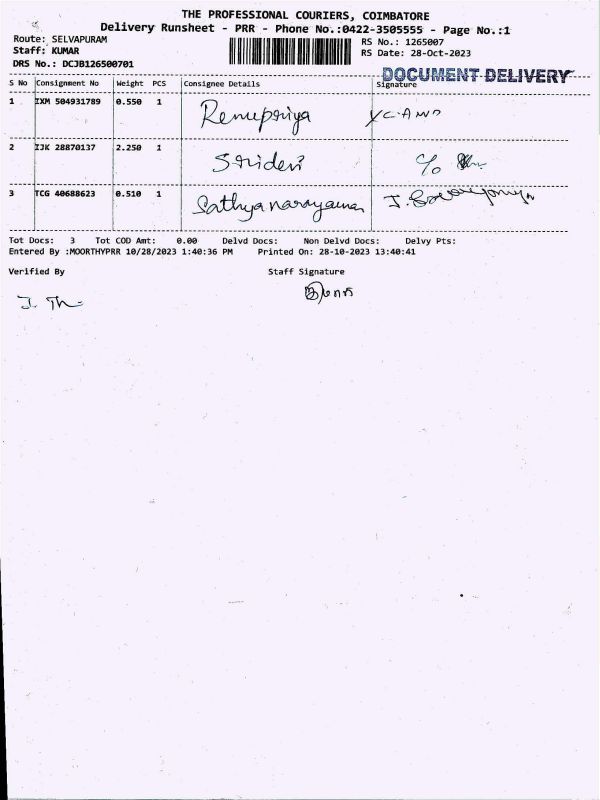 THE PROFESSIONAL COURIERS, COIMBATORE
Delivery Runsheet - PRR - Phone No.:0422-3505555 - Page No.:1
Route: SELVAPURAM RS No.: 1265007
Staff: KUMAR RS Date: 28-Oct-2023
DRS No.: DCJB126500701
DOCUMENT DELIVERY
S No Consignment No Weight PCS Consignee Details Signature
1 IXM 504931789 0.550 1 Renupriya
2 IJK 28870137 2.250 1 Sridevi C/o
3 TCG 40688623 0.510 1 Sathyanarayanan
Tot Docs: 3 Tot COD Amt: 0.00 Delvd Docs: Non Delvd Docs: Delvy Pts:
Entered By :MOORTHYPRR 10/28/2023 1:40:36 PM Printed On: 28-10-2023 13:40:41
Verified By Staff Signature